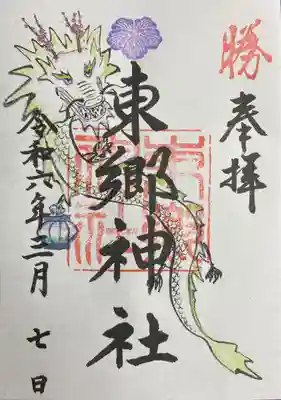 勝
奉拝
東郷神社
令和六年三月七日